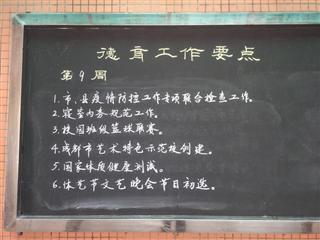 德育工作要点
第9周
1.市、县疫情防控工作专项联合检查工作。
2.寝室内务规范工作。
3.校园班级篮球联赛。
4.成都市艺术特色示范校创建。
5.国家体质健康测试。
6.体艺节文艺晚会节目初选。